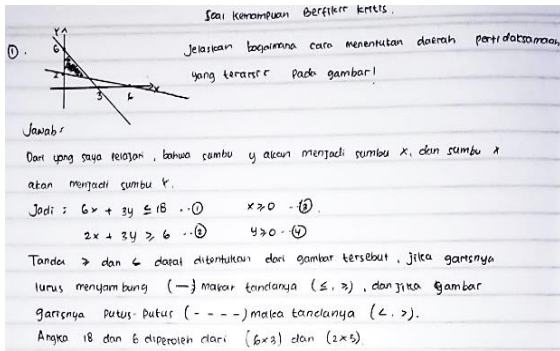 Soal Kemampuan Berfikir Kritis.
①. Jelaskan bagaimana cara menentukan daerah pertidaksamaan
yang terarsir pada gambar!
Y
6
2
3
x
Jawab:
Dari yang saya pelajari, bahwa sumbu y akan menjadi sumbu x, dan sumbu x
akan menjadi sumbu Y.
Jadi : 6x + 3y ≤ 18 ..① x ≥ 0 ..③
2x + 3y ≥ 6 ..② y ≥ 0 ..④
Tanda ≥ dan ≤ dapat ditentukan dari gambar tersebut, jika garisnya
lurus menyambung (—) makar tandanya (≤, ≥), dan jika gambar
garisnya putus-putus (- - - -) maka tandanya (<, >).
Angka 18 dan 6 diperoleh dari (6x3) dan (2x3).